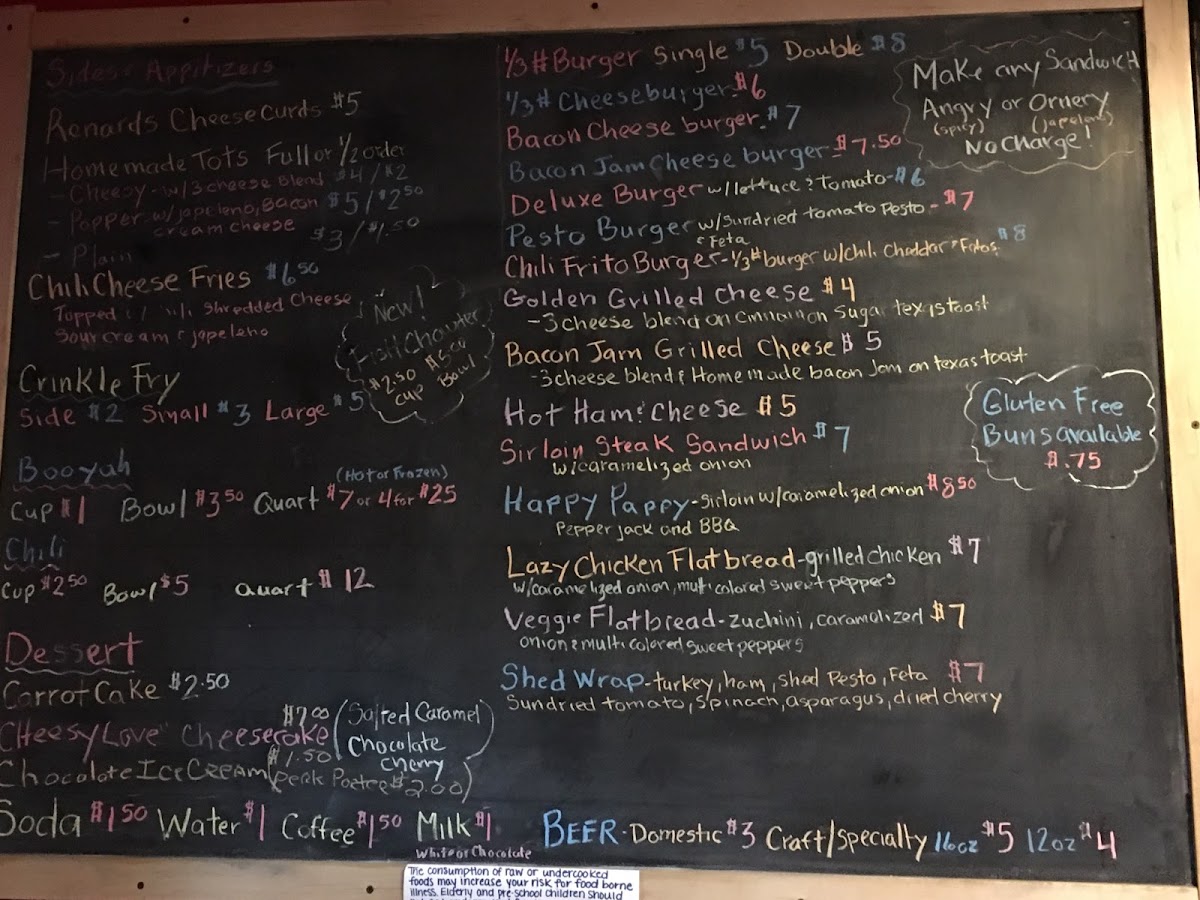 Sides & Appitizers
Renards Cheese Curds $5
Homemade Tots Full or 1/2 order
- Cheesy - w/ 3 cheese Blend $4/$2
- Popper w/ japeleno, Bacon $5/$2.50
cream cheese
- Plain $3/$1.50
Chili Cheese Fries $6.50
Topped w/ chili Shredded Cheese
Sour cream & japeleno
New!
Fish Chowder
$2.50 $5.00
cup Bowl
Crinkle Fry
Side $2 Small $3 Large $5
Booyah
(Hot or Frozen)
Cup $1 Bowl $3.50 Quart $7 or 4 for $25
Chili
Cup $2.50 Bowl $5 Quart $12
Dessert
Carrot Cake $2.50
"Cheesy Love" Cheesecake $7.00 (Salted Caramel
Chocolate
cherry
Chocolate Ice Cream $1.50 (Peak Porter $2.00)
Soda $1.50 Water $1 Coffee $1.50 Milk $1
White or Chocolate
1/3# Burger Single $5 Double $8
1/3# Cheeseburger - $6
Bacon Cheese burger - $7
Bacon Jam Cheese burger - $7.50
Deluxe Burger w/ lettuce & Tomato - $6
Pesto Burger w/ Sundried tomato Pesto - $7
& Feta
Chili Frito Burger - 1/3# burger w/ chili, Cheddar & Fritos $8
Golden Grilled Cheese $4
- 3 cheese blend on Cinnamon Sugar texas toast
Bacon Jam Grilled Cheese $5
- 3 cheese blend & Homemade bacon Jam on texas toast
Hot Ham & Cheese $5
Sirloin Steak Sandwich $7
w/ caramelized onion
Happy Pappy - Sirloin w/ caramelized onion $8.50
Pepper jack and BBQ
Lazy Chicken Flatbread - grilled chicken $7
w/ caramelized onion, multi colored sweet peppers
Veggie Flatbread - zuchini, caramelized $7
onion & multi colored Sweet peppers
Shed Wrap - turkey, ham, shed Pesto, Feta $7
Sundried tomato, Spinach, asparagus, dried cherry
BEER - Domestic $3 Craft/Specialty 16oz $5 12oz $4
Make any Sandwich
Angry or Ornery
(spicy) (japeleno)
No Charge!
Gluten Free
Buns available
$.75
The consumption of raw or undercooked
foods may increase your risk for food borne
illness. Elderly and pre-school children should